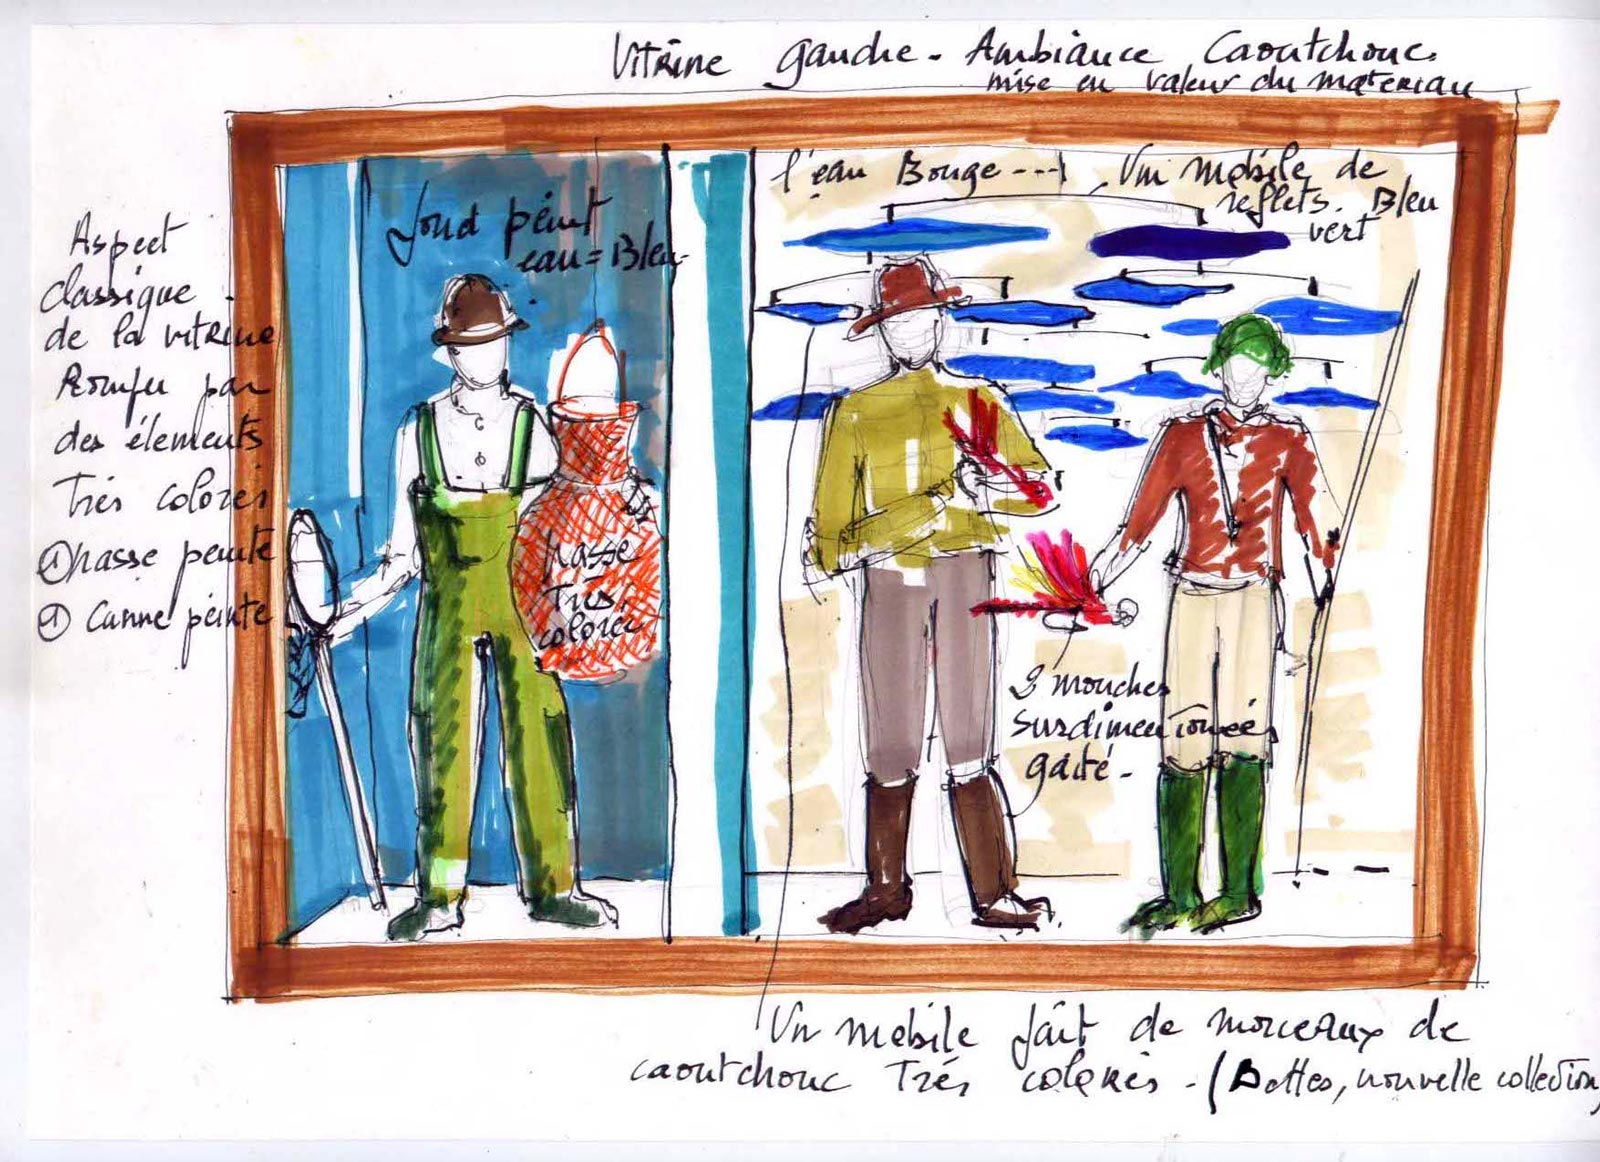 Vitrine gauche - Ambiance Caoutchouc.
mise en valeur du materiau
l'eau Bouge ---
Un mobile de
reflets. Bleu
vert
fond peint
eau = Bleu
Aspect
Classique -
de la vitrine
Rompu par
des élements
Très colorés
① nasse peinte
① Canne peinte
nasse
Très
colorée
3 mouches
surdimentionnées
gaité -
Un mobile fait de morceaux de
caoutchouc Très colorés - (Bottes, nouvelle collection)